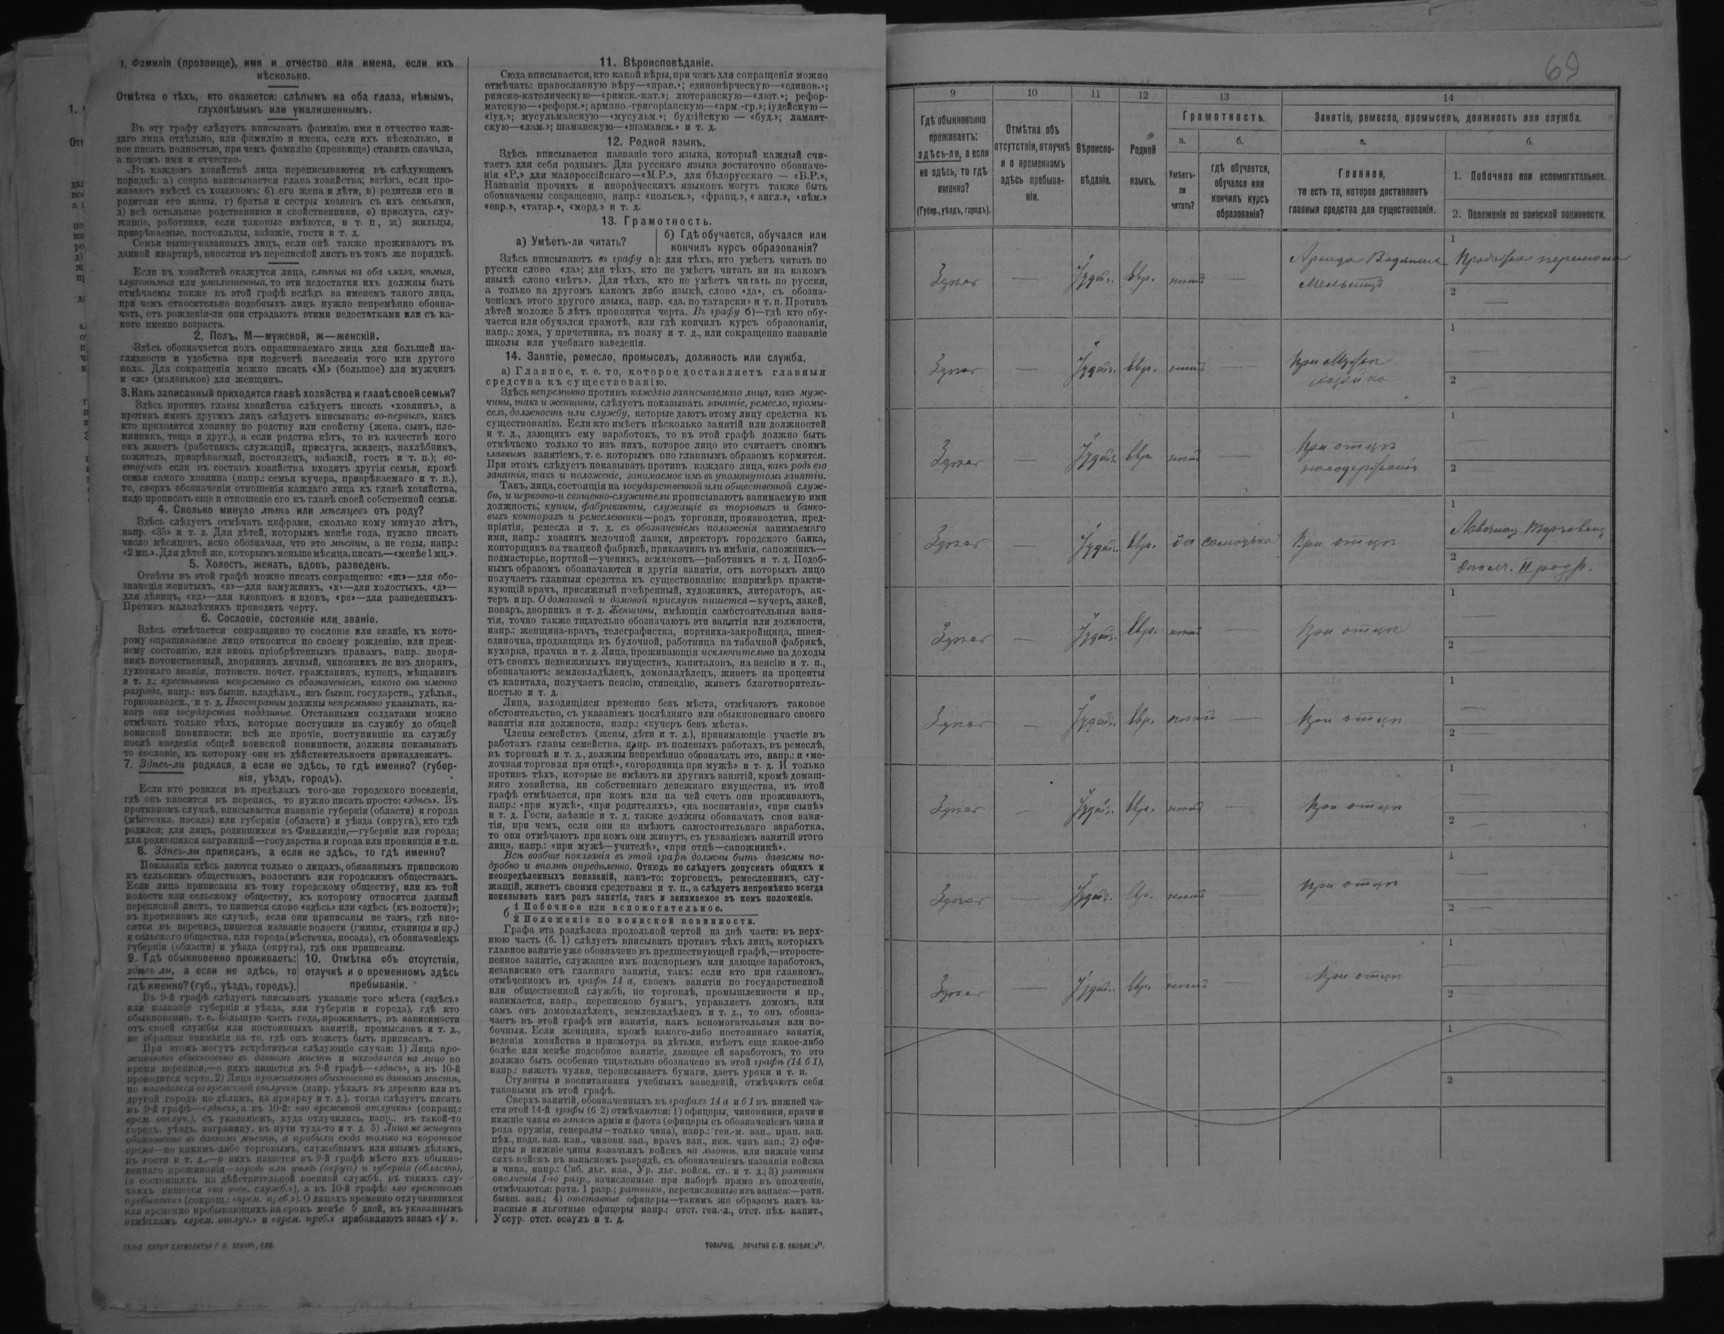 1. Фамилія (прозвище), имя и отчество или имена, если ихъ
нѣсколько.
Отмѣтка о тѣхъ, кто окажется: слѣпымъ на оба глаза, нѣмымъ,
глухонѣмымъ или умалишеннымъ.
Въ эту графу слѣдуетъ вписывать фамилію, имя и отчество каж-
даго лица отдѣльно, или фамилію и имена, если ихъ нѣсколько, и
все писать полностью, при чемъ фамилію (прозвище) ставить сначала,
а потомъ имя и отчество.
Въ каждомъ хозяйствѣ лица переписываются въ слѣдующемъ
порядкѣ: а) сперва записывается глава хозяйства; затѣмъ, если про-
живаютъ вмѣстѣ съ хозяиномъ: б) его жена и дѣти, в) родители его и
родители его жены, г) братья и сестры хозяевъ съ ихъ семьями,
д) всѣ остальные родственники и свойственники, е) прислуга, слу-
жащіе, работники, если таковые имѣются, и т. п., ж) жильцы,
призрѣваемые, постояльцы, заѣзжіе, гости и т. д.
Семьи вышеуказанныхъ лицъ, если онѣ также проживаютъ въ
данной квартирѣ, вносятся въ переписной листъ въ томъ же порядкѣ.
Если въ хозяйствѣ окажутся лица, слѣпыя на оба глаза, нѣмыя,
глухонѣмыя или умалишенныя, то эти недостатки ихъ должны быть
отмѣчаемы также въ этой графѣ вслѣдъ за именемъ такого лица,
при чемъ относительно подобныхъ лицъ нужно непремѣнно обозна-
чать, отъ рожденія-ли они страдаютъ этими недостатками или съ ка-
кого именно возраста.
2. Полъ. М—мужской, ж—женскій.
Здѣсь обозначается полъ опрашиваемаго лица для большей на-
глядности и удобства при подсчетѣ населенія того или другого
пола. Для сокращенія можно писать «М» (большое) для мужчинъ
и «ж» (маленькое) для женщинъ.
3. Какъ записанный приходится главѣ хозяйства и главѣ своей семьи?
Здѣсь противъ главы хозяйства слѣдуетъ писать «хозяинъ», а
противъ именъ другихъ лицъ слѣдуетъ вписывать: во-первыхъ, какъ
кто приходится хозяину по родству или свойству (жена, сынъ, пле-
мянникъ, теща и друг.), а если родства нѣтъ, то въ качествѣ кого
онъ живетъ (работникъ, служащій, прислуга, жилецъ, нахлѣбникъ,
сожитель, призрѣваемый, постоялецъ, заѣзжій, гость и т. п.); во-
вторыхъ если въ составъ хозяйства входятъ другія семьи, кромѣ
семьи самого хозяина (напр.: семья кучера, призрѣваемаго и т. п.),
то, сверхъ обозначенія отношенія каждаго лица къ главѣ хозяйства,
надо прописать еще и отношеніе его къ главѣ своей собственной семьи.
4. Сколько минуло лѣтъ или мѣсяцевъ отъ роду?
Здѣсь слѣдуетъ отмѣчать цифрами, сколько кому минуло лѣтъ,
напр. «35» и т. д. Для дѣтей, которымъ менѣе года, нужно писать
число мѣсяцевъ, ясно обозначая, что это мѣсяцы, а не годы, напр.:
«2 мц.». Для дѣтей же, которымъ меньше мѣсяца, писать—«менѣе 1 мц.».
5. Холостъ, женатъ, вдовъ, разведенъ.
Отвѣты въ этой графѣ можно писать сокращенно: «ж»—для обо-
значенія женатыхъ, «з»—для замужнихъ, «х»—для холостыхъ, «д»—
для дѣвицъ, «вд»—для вдовцовъ и вдовъ, «рз»—для разведенныхъ.
Противъ малолѣтнихъ проводить черту.
6. Сословіе, состояніе или званіе.
Здѣсь отмѣчается сокращенно то сословіе или званіе, къ кото-
рому опрашиваемое лицо относится по своему рожденію, или преж-
нему состоянію, или вновь пріобрѣтеннымъ правамъ, напр.: дворя-
нинъ потомственный, дворянинъ личный, чиновникъ не изъ дворянъ,
духовнаго званія, потомств. почет. гражданинъ, купецъ, мѣщанинъ
и т. д.; крестьянинъ непремѣнно съ обозначеніемъ, какого онъ именно
разряда, напр.: изъ бывш. владѣльч., изъ бывш. государств., удѣльн.,
горнозаводск., и т. д. Иностранцы должны непремѣнно указывать, ка-
кого они государства подданные. Отставными солдатами можно
отмѣчать только тѣхъ, которые поступили на службу до общей
воинской повинности; всѣ же прочіе, поступившіе на службу
послѣ введенія общей воинской повинности, должны показывать
то сословіе, къ которому они въ дѣйствительности принадлежатъ.
7. Здѣсь-ли родился, а если не здѣсь, то гдѣ именно? (губер-
нія, уѣздъ, городъ).
Если кто родился въ предѣлахъ того-же городского поселенія,
гдѣ онъ вносится въ перепись, то нужно писать просто: «здѣсь». Въ
противномъ случаѣ, вписывается названіе губерніи (области) и города
(мѣстечка, посада) или губерніи (области) и уѣзда (округа), кто гдѣ
родился; для лицъ, родившихся въ Финляндіи,—губерніи или города;
для родившихся заграницей—государства и города или провинціи и т.п.
8. Здѣсь-ли приписанъ, а если не здѣсь, то гдѣ именно?
Показанія здѣсь даются только о лицахъ, обязанныхъ припискою
къ сельскимъ обществамъ, волостямъ или городскимъ обществамъ.
Если лица приписаны къ тому городскому обществу, или къ той
волости или сельскому обществу, къ которому относится данный
переписной листъ, то пишется слово «здѣсь» или «здѣсь (къ волости)»;
въ противномъ же случаѣ, если они приписаны не тамъ, гдѣ вно-
сятся въ перепись, пишется названіе волости (гмины, станицы и пр.)
и сельскаго общества, или города (мѣстечка, посада), съ обозначеніемъ
губерніи (области) и уѣзда (округа), гдѣ они приписаны.
9. Гдѣ обыкновенно проживаетъ:
здѣсь-ли, а если не здѣсь, то
гдѣ именно? (губ., уѣздъ, городъ).
10. Отмѣтка объ отсутствіи,
отлучкѣ и о временномъ здѣсь
пребываніи.
Въ 9-й графѣ слѣдуетъ вписывать указаніе того мѣста («здѣсь»
или названіе губерніи и уѣзда, или губерніи и города), гдѣ кто
обыкновенно, т. е. большую часть года, проживаетъ, въ зависимости
отъ своей службы или постоянныхъ занятій, промысловъ и т. д.,
не обращая вниманія на то, гдѣ онъ можетъ быть приписанъ.
При этомъ могутъ встрѣтиться слѣдующіе случаи: 1) Лица про-
живаютъ обыкновенно въ данномъ мѣстѣ и находятся на лицо во
время переписи,—о нихъ пишется въ 9-й графѣ—«здѣсь», а въ 10-й
проводится черта. 2) Лица проживаютъ обыкновенно въ данномъ мѣстѣ,
но находятся во временной отлучкѣ (напр. уѣхалъ въ деревню или въ
другой городъ по дѣламъ, на ярмарку и т. д.), тогда слѣдуетъ писать
въ 9-й графѣ—«здѣсь», а въ 10-й: «во временной отлучкѣ» (сокращ.:
врем. отлуч.), съ указаніемъ, куда отлучились, напр.: въ такой-то
городъ, уѣздъ, заграницу, въ пути туда-то и т. д. 3) Лица не живутъ
обыкновенно въ данномъ мѣстѣ, а прибыли сюда только на короткое
время—по какимъ-либо торговымъ, служебнымъ или инымъ дѣламъ,
въ гости и т. д.,—о нихъ пишется въ 9-й графѣ мѣсто ихъ обыкно-
веннаго проживанія—городъ или уѣздъ (округъ) и губернія (область),
(о состоящихъ на дѣйствительной военной службѣ, въ такихъ слу-
чаяхъ пишется «на воен. службѣ»), а въ 10-й графѣ: «во временномъ
пребываніи» (сокращ.: «врем. преб.»). О лицахъ временно отлучившихся
или временно пребывающихъ на срокъ менѣе 5 дней, къ указаннымъ
отмѣткамъ «врем. отлуч.» и «врем. преб.» прибавляютъ знакъ «V».
11. Вѣроисповѣданіе.
Сюда вписывается, кто какой вѣры, при чемъ для сокращенія можно
отмѣчать: православную вѣру—«прав.»; единовѣрческую—«единов.»;
римско-католическую—«римск.-кат.»; лютеранскую—«лют.»; рефор-
матскую—«реформ.»; армяно-григоріанскую—«арм.-гр.»; іудейскую—
«іуд.»; мусульманскую—«мусульм.»; буддійскую — «буд.»; ламаит-
скую—«лам.»; шаманскую—«шаманск.» и т. д.
12. Родной языкъ.
Здѣсь вписывается названіе того языка, который каждый счи-
таетъ для себя роднымъ. Для русскаго языка достаточно обозначе-
нія «Р.» для малороссійскаго—«М.Р.», для бѣлорусскаго — «Б.Р.»,
Названія прочихъ и инородческихъ языковъ могутъ также быть
обозначены сокращенно, напр.: «польск.», «франц.», «англ.», «нѣм.»
«евр.», «татар.», «морд.» и т. д.
13. Грамотность.
а) Умѣетъ-ли читать?
б) Гдѣ обучается, обучался или
кончилъ курсъ образованія?
Здѣсь вписываютъ въ графу а): для тѣхъ, кто умѣетъ читать по
русски слово «да»; для тѣхъ, кто не умѣетъ читать ни на какомъ
языкѣ слово «нѣтъ». Для тѣхъ, кто не умѣетъ читать по русски,
а только на другомъ какомъ либо языкѣ, слово «да», съ обозна-
ченіемъ этого другого языка, напр. «да, по татарски» и т. п. Противъ
дѣтей моложе 5 лѣтъ проводится черта. Въ графу б)—гдѣ кто обу-
чается или обучался грамотѣ, или гдѣ кончилъ курсъ образованія,
напр.: дома, у причетника, въ полку и т. д., или сокращенно названіе
школы или учебнаго заведенія.
14. Занятіе, ремесло, промыселъ, должность или служба.
а) Главное, т. е. то, которое доставляетъ главныя
средства къ существованію.
Здѣсь непремѣнно противъ каждаго записываемаго лица, какъ муж-
чины, такъ и женщины, слѣдуетъ показывать занятіе, ремесло, промы-
селъ, должность или службу, которые даютъ этому лицу средства къ
существованію. Если кто имѣетъ нѣсколько занятій или должностей
и т. д., дающихъ ему заработокъ, то въ этой графѣ должно быть
отмѣчаемо только то изъ нихъ, которое лицо это считаетъ своимъ
главнымъ занятіемъ, т. е. которымъ оно главнымъ образомъ кормится.
При этомъ слѣдуетъ показывать противъ каждаго лица, какъ родъ его
занятія, такъ и положеніе, занимаемое имъ въ упомянутомъ занятіи.
Такъ, лица, состоящія на государственной или общественной служ-
бѣ, и церковно-и священно-служители прописываютъ занимаемую ими
должность; купцы, фабриканты, служащіе въ торговыхъ и банко-
выхъ конторахъ и ремесленники—родъ торговли, производства, пред-
пріятія, ремесла и т. д. съ обозначеніемъ положенія занимаемаго
ими, напр.: хозяинъ мелочной лавки, директоръ городского банка,
конторщикъ на ткацкой фабрикѣ, приказчикъ въ имѣніи, сапожникъ—
подмастерье, портной—ученикъ, землекопъ—работникъ и т. д. Подоб-
нымъ образомъ обозначаются и другія занятія, отъ которыхъ лицо
получаетъ главныя средства къ существованію: напримѣръ практи-
кующій врачъ, присяжный повѣренный, художникъ, литераторъ, ак-
теръ и пр. О домашней и домовой прислугѣ пишется—кучеръ, лакей,
поваръ, дворникъ и т. д. Женщины, имѣющія самостоятельныя заня-
тія, точно также тщательно обозначаютъ эти занятія или должности,
напр.: женщина-врачъ, телеграфистка, портниха-закройщица, швея-
одиночка, продавщица въ булочной, работница на табачной фабрикѣ,
кухарка, прачка и т. д. Лица, проживающія исключительно на доходы
отъ своихъ недвижимыхъ имуществъ, капиталовъ, на пенсію и т. п.,
обозначаютъ: землевладѣлецъ, домовладѣлецъ, живетъ на проценты
съ капитала, получаетъ пенсію, стипендію, живетъ благотворитель-
ностью и т. д.
Лица, находящіяся временно безъ мѣста, отмѣчаютъ таковое
обстоятельство, съ указаніемъ послѣдняго или обыкновеннаго своего
занятія или должности, напр.: «кучеръ безъ мѣста».
Члены семействъ (жены, дѣти и т. д.), принимающіе участіе въ
работахъ главы семейства, напр. въ полевыхъ работахъ, въ ремеслѣ,
въ торговлѣ и т. д., должны непремѣнно обозначать это, напр.: и «ме-
лочная торговля при отцѣ», «огородница при мужѣ» и т. д. И только
противъ тѣхъ, которые не имѣютъ ни другихъ занятій, кромѣ домаш-
няго хозяйства, ни собственнаго денежнаго имущества, въ этой
графѣ отмѣчается, при комъ или на чей счетъ они проживаютъ,
напр.: «при мужѣ», «при родителяхъ», «на воспитаніи», «при сынѣ»
и т. д. Гости, заѣзжіе и т. д. также должны обозначать свои заня-
тія, при чемъ, если они не имѣютъ самостоятельнаго заработка,
то они отмѣчаютъ при комъ они живутъ, съ указаніемъ занятій этого
лица, напр.: «при мужѣ—учителѣ», «при отцѣ—сапожникѣ».
Всѣ вообще показанія въ этой графѣ должны быть даваемы по-
дробно и вполнѣ опредѣленно. Отнюдь не слѣдуетъ допускать общихъ и
неопредѣленныхъ показаній, какъ-то: торговецъ, ремесленникъ, слу-
жащій, живетъ своими средствами и т. п., а слѣдуетъ непремѣнно всегда
показывать какъ родъ занятія, такъ и занимаемое въ немъ положеніе.
б 1 Побочное или вспомогательное.
2 Положеніе по воинской повинности.
Графа эта раздѣлена продольной чертой на двѣ части: въ верх-
нюю часть (б. 1) слѣдуетъ вписывать противъ тѣхъ лицъ, которыхъ
главное занятіе уже обозначено въ предшествующей графѣ,—второсте-
пенное занятіе, служащее имъ подспорьемъ или дающее заработокъ,
независимо отъ главнаго занятія, такъ: если кто при главномъ,
отмѣченномъ въ графѣ 14 а, своемъ занятіи по государственной
или общественной службѣ, по торговлѣ, промышленности и пр.,
занимается, напр., перепискою бумагъ, управляетъ домомъ, или
самъ онъ домовладѣлецъ, землевладѣлецъ и т. д., то онъ обозна-
чаетъ въ этой графѣ эти занятія, какъ вспомогательныя или по-
бочныя. Если женщина, кромѣ какого-либо постояннаго занятія,
веденія хозяйства и присмотра за дѣтьми, имѣетъ еще какое-либо
болѣе или менѣе подсобное занятіе, дающее ей заработокъ, то это
должно быть особенно тщательно обозначено въ этой графѣ (14 б 1),
напр.: вяжетъ чулки, переписываетъ бумаги, даетъ уроки и т. п.
Студенты и воспитанники учебныхъ заведеній, отмѣчаютъ себя
таковыми въ этой графѣ.
Сверхъ занятій, обозначенныхъ въ графахъ 14 а и б 1 въ нижней ча-
сти этой 14-й графы (б 2) отмѣчаются: 1) офицеры, чиновники, врачи и
нижніе чины въ запасѣ арміи и флота (офицеры съ обозначеніемъ чина и
рода оружія, генералы—только чина), напр.: ген.-м. зап., прап. зап.
пѣх., подп. зап. кав., чиновн. зап., врачъ зап., ниж. чинъ зап.; 2) офи-
церы и нижніе чины казачьихъ войскъ на льготѣ, или нижніе чины
сихъ войскъ въ запасномъ разрядѣ, съ обозначеніемъ названія войска
и чина, напр.: Сиб. льг. каз., Ур. льг. войск. ст. и т. д.; 3) ратники
ополченія 1-го разр., зачисленные при наборѣ прямо въ ополченіе,
отмѣчаются: ратн. 1 разр.; ратники, перечисленные изъ запаса:—ратн.
бывш. зап.; 4) отставные офицеры—такимъ же образомъ какъ за-
пасные и льготные офицеры напр.: отст. ген.-л., отст. пѣх. капит.,
Уссур. отст. есаулъ и т. д.
69
9 10 11 12 13 14
Гдѣ обыкновенно
проживаетъ:
здѣсь-ли, а если
не здѣсь, то гдѣ
именно?
(Губер., уѣздъ, городъ).
Отмѣтка объ
отсутствіи, отлучкѣ
и о временномъ
здѣсь пребыва-
ніи.
Вѣроиспо-
вѣданіе.
Родной
языкъ.
Грамотность.
а.
Умѣетъ-
ли
читать?
б.
гдѣ обучается,
обучался или
кончилъ курсъ
образованія?
Занятіе, ремесло, промыселъ, должность или служба.
а.
Главное,
то есть то, которое доставляетъ
главныя средства для существованія.
б.
1. Побочное или вспомогательное.
2. Положеніе по воинской повинности.
Здѣсь — Іудей. Евр. нѣтъ — Аренда Водяной 1
Мельницы 2 —
Здѣсь — Іудей. Евр. нѣтъ — При Мужѣ 1
хозяйка 2
Здѣсь — Іудей. Евр. нѣтъ — При отцѣ 1
2
Здѣсь — Іудей. Евр. да При отцѣ 1
2 Ополч. II разр.
Здѣсь — Іудей. Евр. нѣтъ — При отцѣ 1 —
2 —
Здѣсь — Іудей. Евр. нѣтъ — При отцѣ 1 —
2 —
Здѣсь — Іудей. Евр. нѣтъ — При отцѣ 1 —
2 —
Здѣсь — Іудей. Евр. нѣтъ При отцѣ 1 —
2 —
Здѣсь — Іудей. Евр. нѣтъ При отцѣ 1 —
2 —
1
2